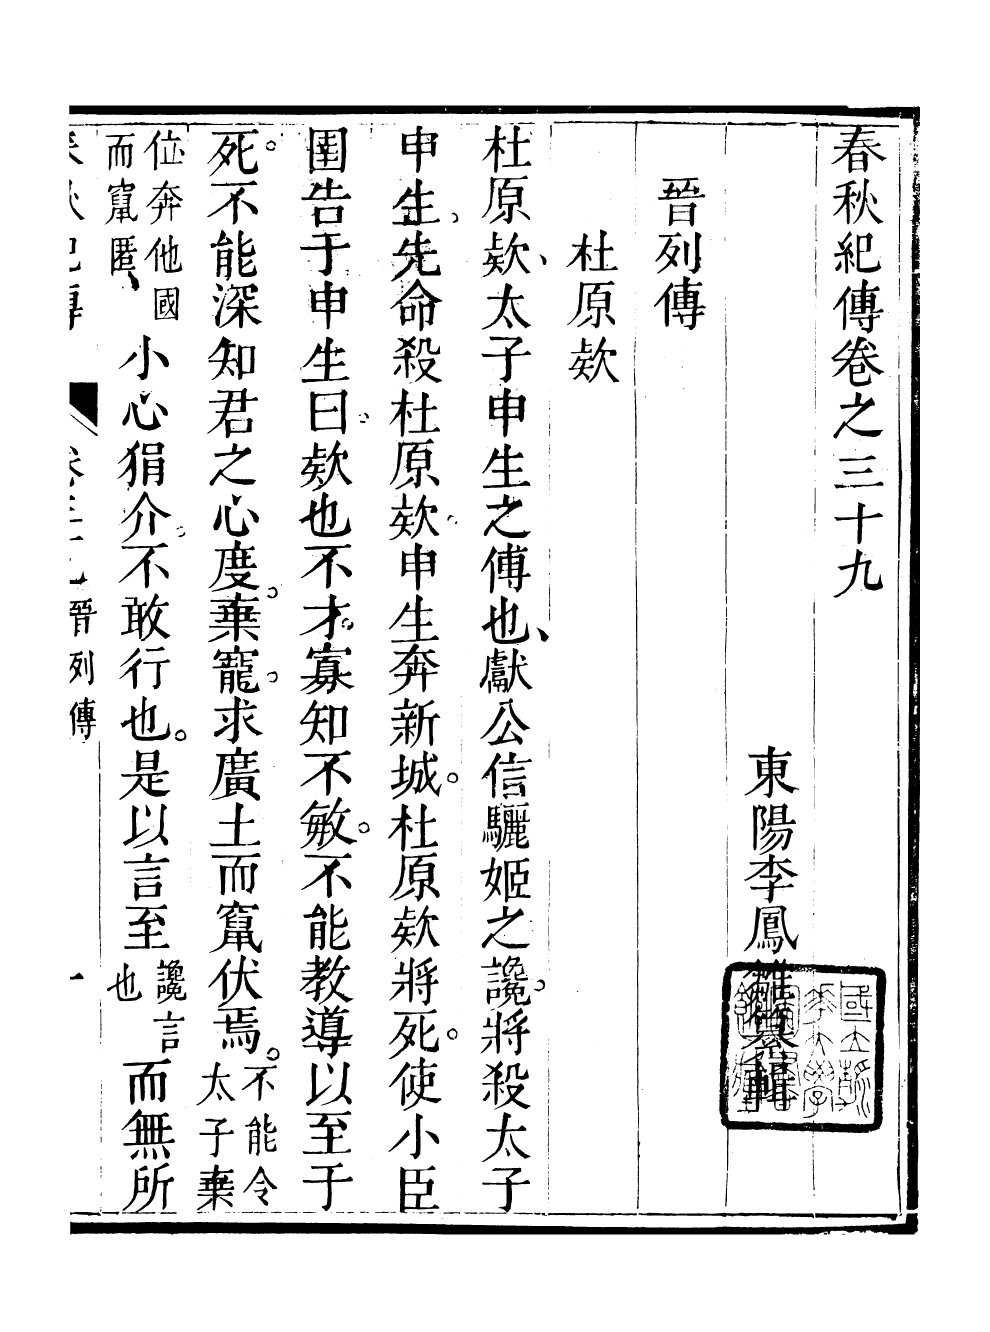 春秋紀傳卷之三十九
東陽李鳳雛纂輯
晉列傳
杜原欵
杜原欵、太子申生之傅也、獻公信驪姬之讒。將殺太子
申生。先命殺杜原欵。申生奔新城。杜原欵將死。使小臣
圉告于申生曰。欵也不才。寡知不敏。不能教導以至于
死。不能深知君之心度。棄寵。求廣土而竄伏焉。不能令太子棄
位奔他國而竄匿、小心狷介。不敢行也。是以言至讒言也而無所
春秋紀傳 卷三十九 晉列傳 一